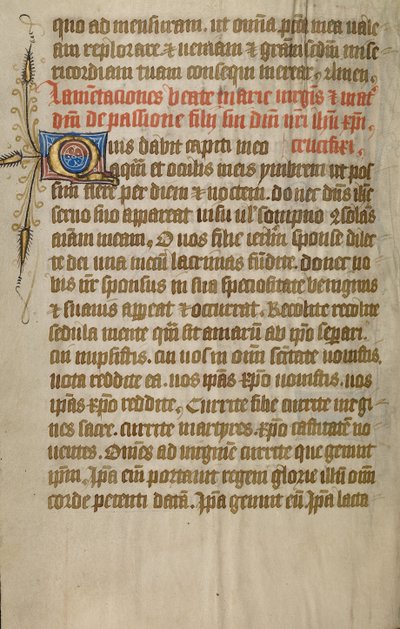 quo ad mensuram. ut om̄ia pctā mea vale
am ꝛeploꝛare ⁊ veniam ⁊ grām scđm mise
ricoꝛdiam tuam consequi mereaꝛ. Amen.
Lamētaciones beate marie virgīs ⁊ mat̄
dm̄ de passione filii sui dnī nr̄i ihū xpī
Quis dabit capiti meo crucifixi.
aquā et oculis meis ymbrem ut pos
sim flere per diem ⁊ noctem. donec dn̄s ihc̄
seruo suo appareat uisu ul̄ sompno ⁊ solās
aīam meam. O uos filie ierl̄m sponse dilec
te dei una mecū lacrimas fūdite. donec no
bis vr̄ sponsus in sua speciositate benignus
⁊ suauis appareat ⁊ occurrat. Recolite recolite
sedula mente qm̄ sit amarū ab ip̄o separi.
cui nupsistis. cui uos in om̄i sc̄itate uouistis.
uota reddite ea. uos ip̄as xp̄o uouistis. uos
ip̄as xp̄o reddite. Currite filie currite uirgi
nes sacre. currite martyres. xp̄o castitatē uo
uentes. Om̄es ad uirginē currite que genuit
ip̄m. Ip̄a eī portauit regem glorie illū om̄i
corde petenti datā. Ip̄a genuit eū Ip̄a lacta